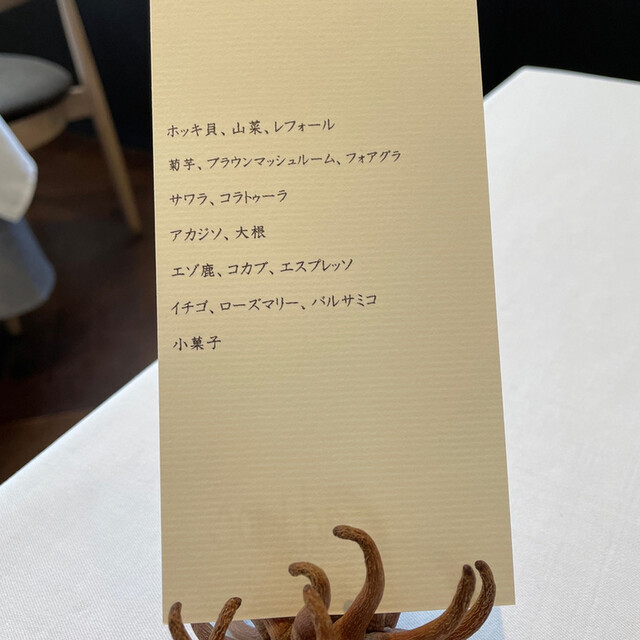 ホッキ貝、山菜、レフォール
菊芋、ブラウンマッシュルーム、フォアグラ
サワラ、コラトゥーラ
アカジソ、大根
エゾ鹿、コカブ、エスプレッソ
イチゴ、ローズマリー、バルサミコ
小菓子